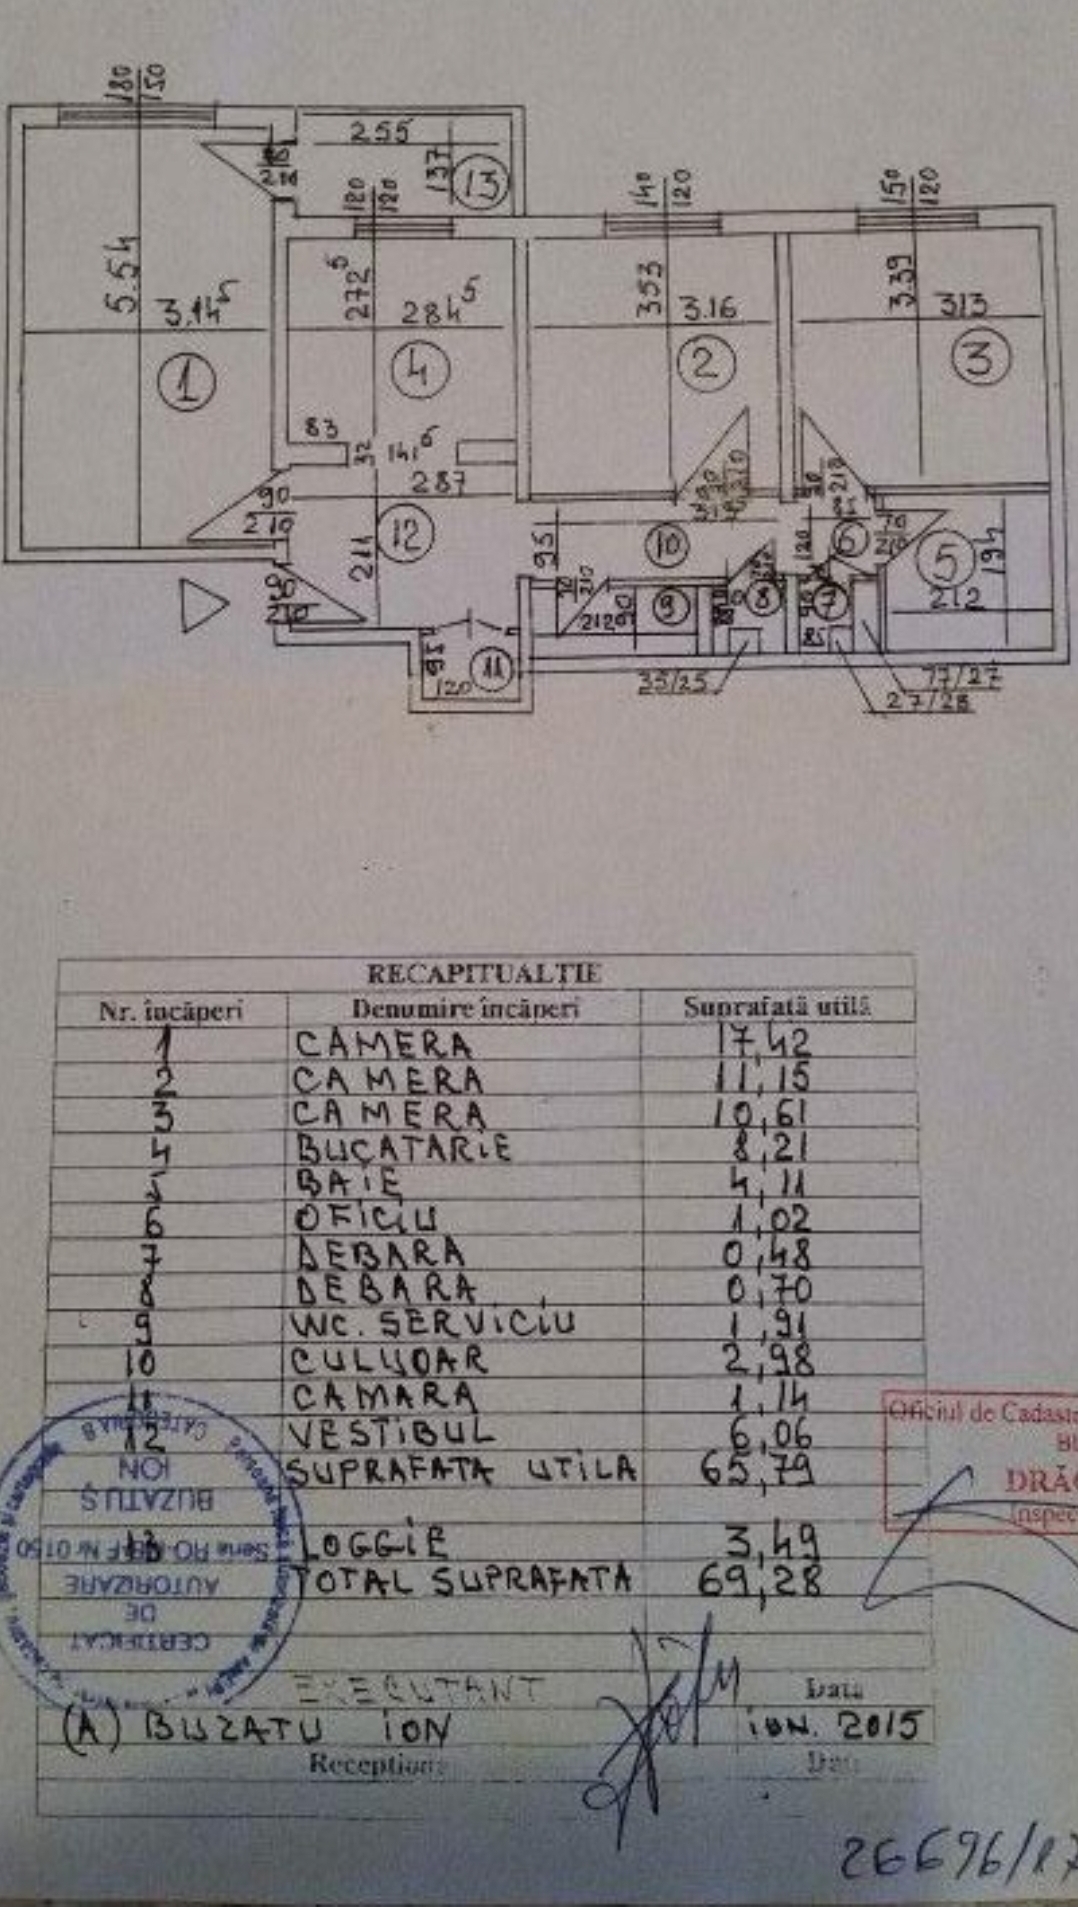 180
150
255
90
210
137
13
120
120
140
120
150
120
5.54
3.14⁵
1
272⁵
284⁵
4
353
3.16
2
3.39
313
3
83
32
141⁵
287
90
210
12
211
90
210
95
120
11
95
10
120
6
70
210
5
194
212
212
90
9
8
7
85
35/25
77/27
27/28
RECAPITUALȚIE
Nr. încăperi Denumire încăperi Suprafată utilă
1 CAMERA 17,42
2 CAMERA 11,15
3 CAMERA 10,61
4 BUCATARiE 8,21
5 BAiE 4,11
6 OFiCiU 1,02
7 DEBARA 0,48
8 DEBARA 0,70
9 WC. SERViCiU 1,91
10 CULUOAR 2,98
11 CAMARA 1,14
12 VESTiBUL 6,06
SUPRAFATA UTiLA 65,79
13 LOGGiE 3,49
TOTAL SUPRAFATA 69,28
CERTIFICAT
DE
AUTORIZARE
Seria RO-B-F Nr 0150
BUZATU Ș
ION
CATEGORIA B
Oficiul de Cadast
DRĂ
Inspec
EXECUTANT Data
(A) BUZATU iON iUN. 2015
Receptionat Data
26696/17